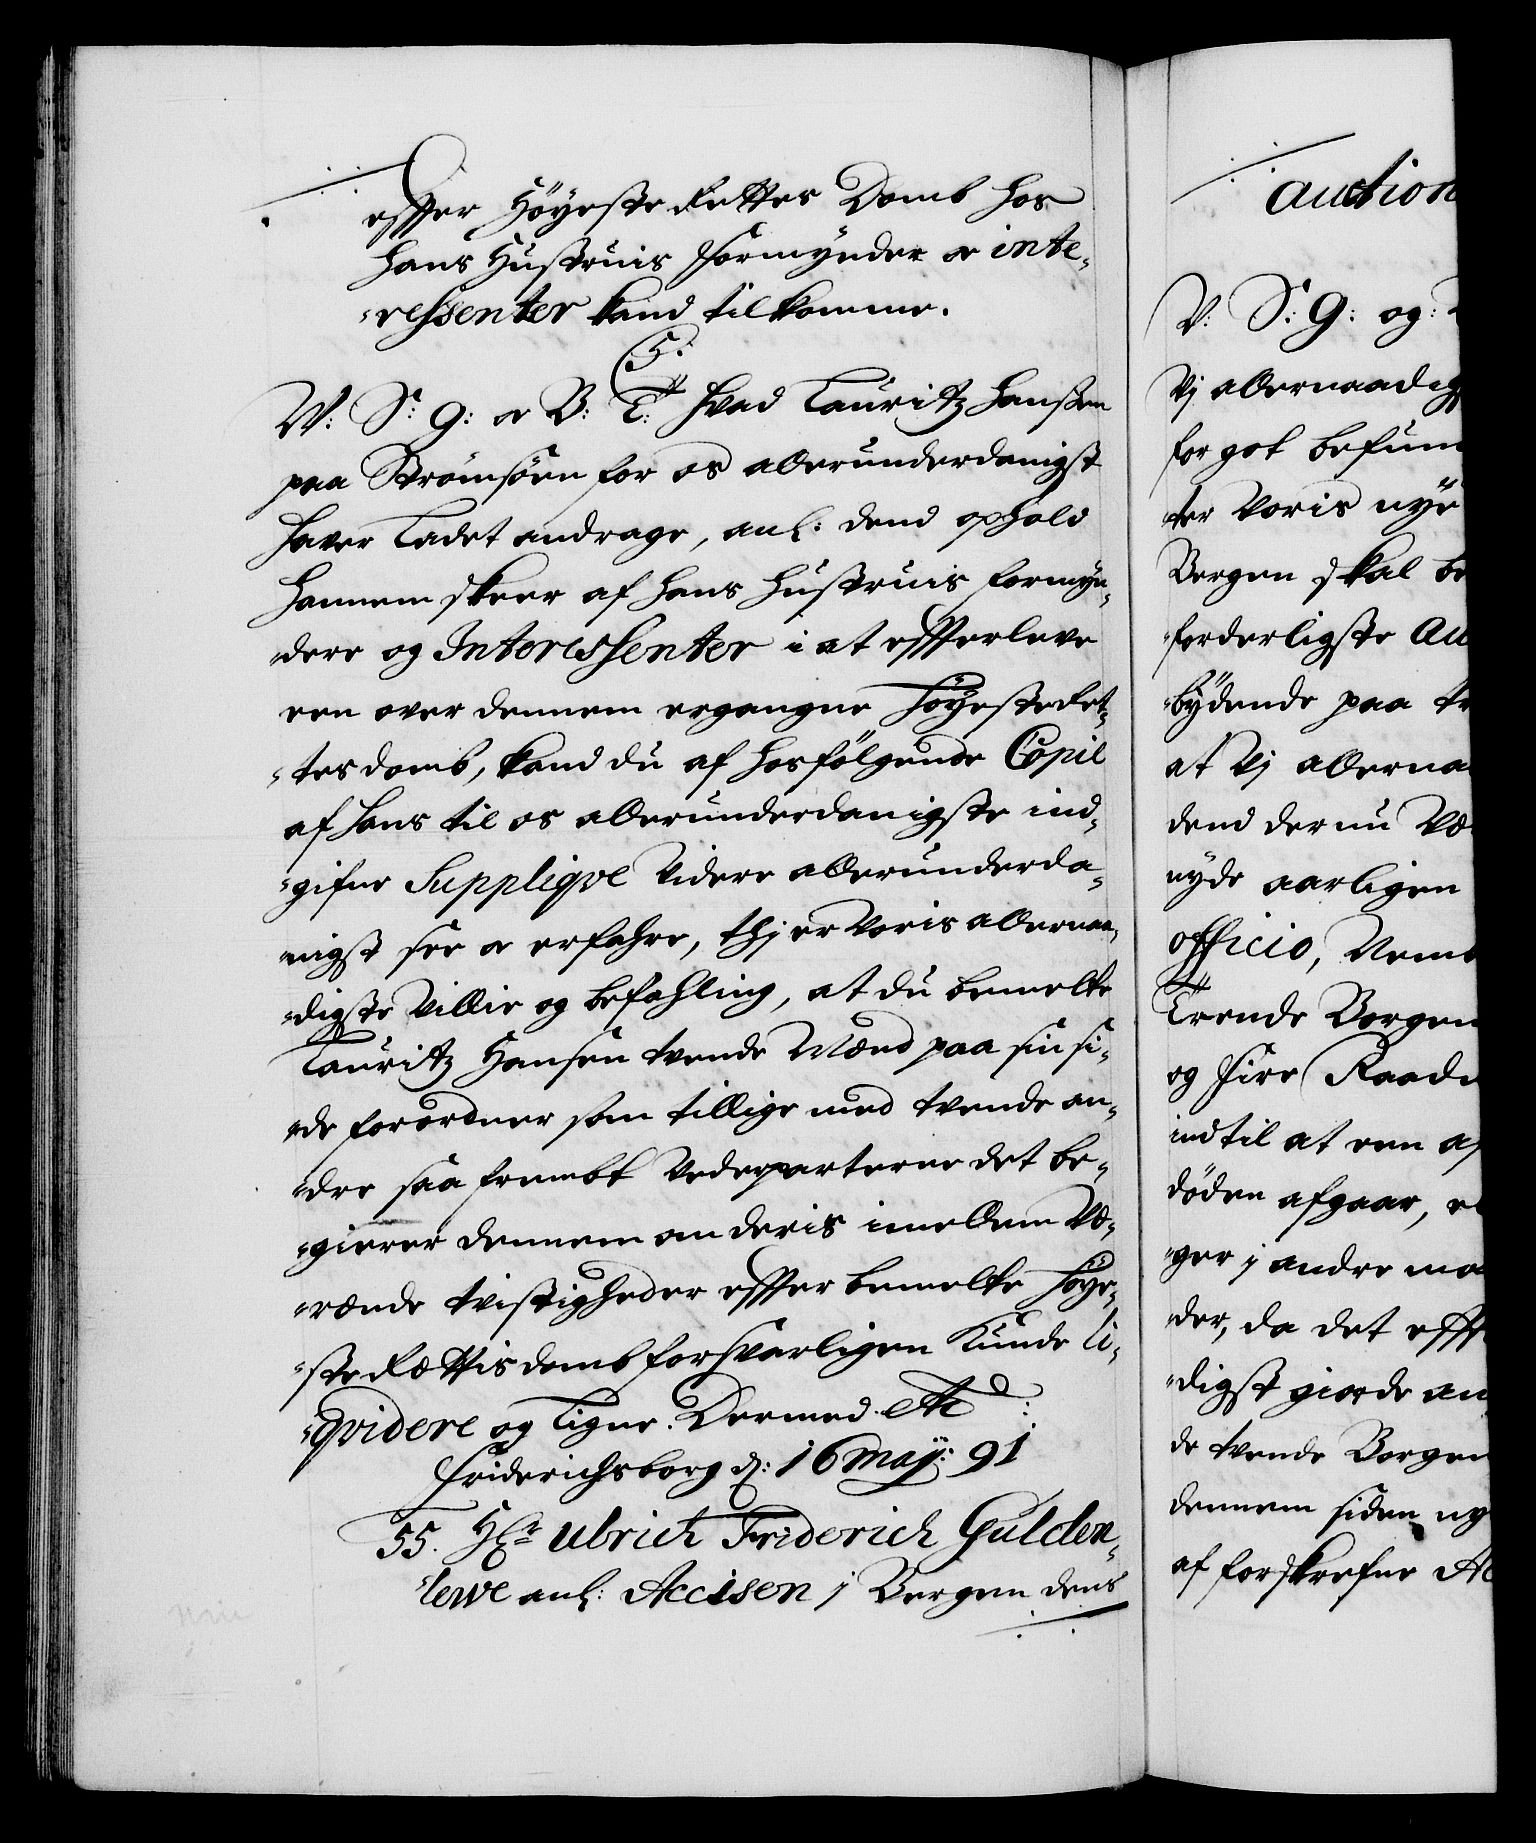 efter Høyesteretttes Domb hos
hans Hustruis Formynder og inte-
-ressenter kand tilkomme.
C. 5.
W: S: G: og B: T: Hvad Lauritz Hansen
paa Strömsöen for os allerunderdanigst
hafver ladet andrage, anl: dend ophold
hannem skeer af hans Hustruis formyn-
-dere og Interessenter i at effterleve
een over dennem ergangne Höyesteret-
-tes domb, kand du af hosfölgende Copie
af hans til os allerunderdanigste ind-
-gifne Suppliqve Videre allerunderda-
-nigst see og erfahre, thj er Voris allernaa-
-digste Villie og befahling, at du bemelte
Lauritz Hansen tvende Mænd paa sin si-
-de forordner som tillige med tvende an-
-dre saa fremt Vederparterne det be-
-gierer dennem om deris imellem Væ-
-rende tvistigheder effter bemelte Höye-
-ste Rettis domb forsvarligen kunde li-
-qvidere og ligne. Dermed etc
Friderichsborg d: 16 Maij: 91
55. Hr Ulrich Friderich Gulden-
-lewe anl: Accisen i Bergen dens
auction
V: S: G: og:
Vj allernaadigst
for got befun
-ter Voris nye
Bergen skal be
-forderligste Au
-bydende paa tr
at Vj allerna
dend der nu Væ
nyde aarligen
officio, Nemb
Trende Borgem
og fire Raadm
indtil at een af
döden afgaar, el
-ger i andre maa
-der, da det efft
-digst giorde an
de tvende Borgem
dennem siden ny
af forskrefne Ac